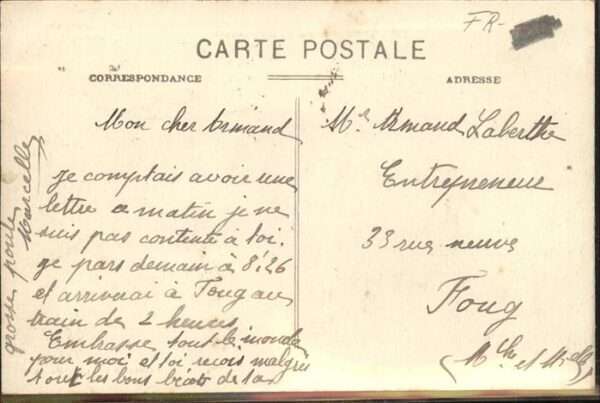 FR-
CARTE POSTALE
CORRESPONDANCE
ADRESSE
Mon cher Armand
je comptais avoir une
lettre ce matin je ne
suis pas contente à toi.
je pars demain à 8h26
et arriverai à Foug au
train de 2 heures
Embrasse tout le monde
pour moi et toi reçois malgré
tout les bons bécots de ta
grosse poule
Marcelle
Mr Armand Laberthe
Entrepreneur
33 rue neuve
Foug
(Mthe et Mlle)